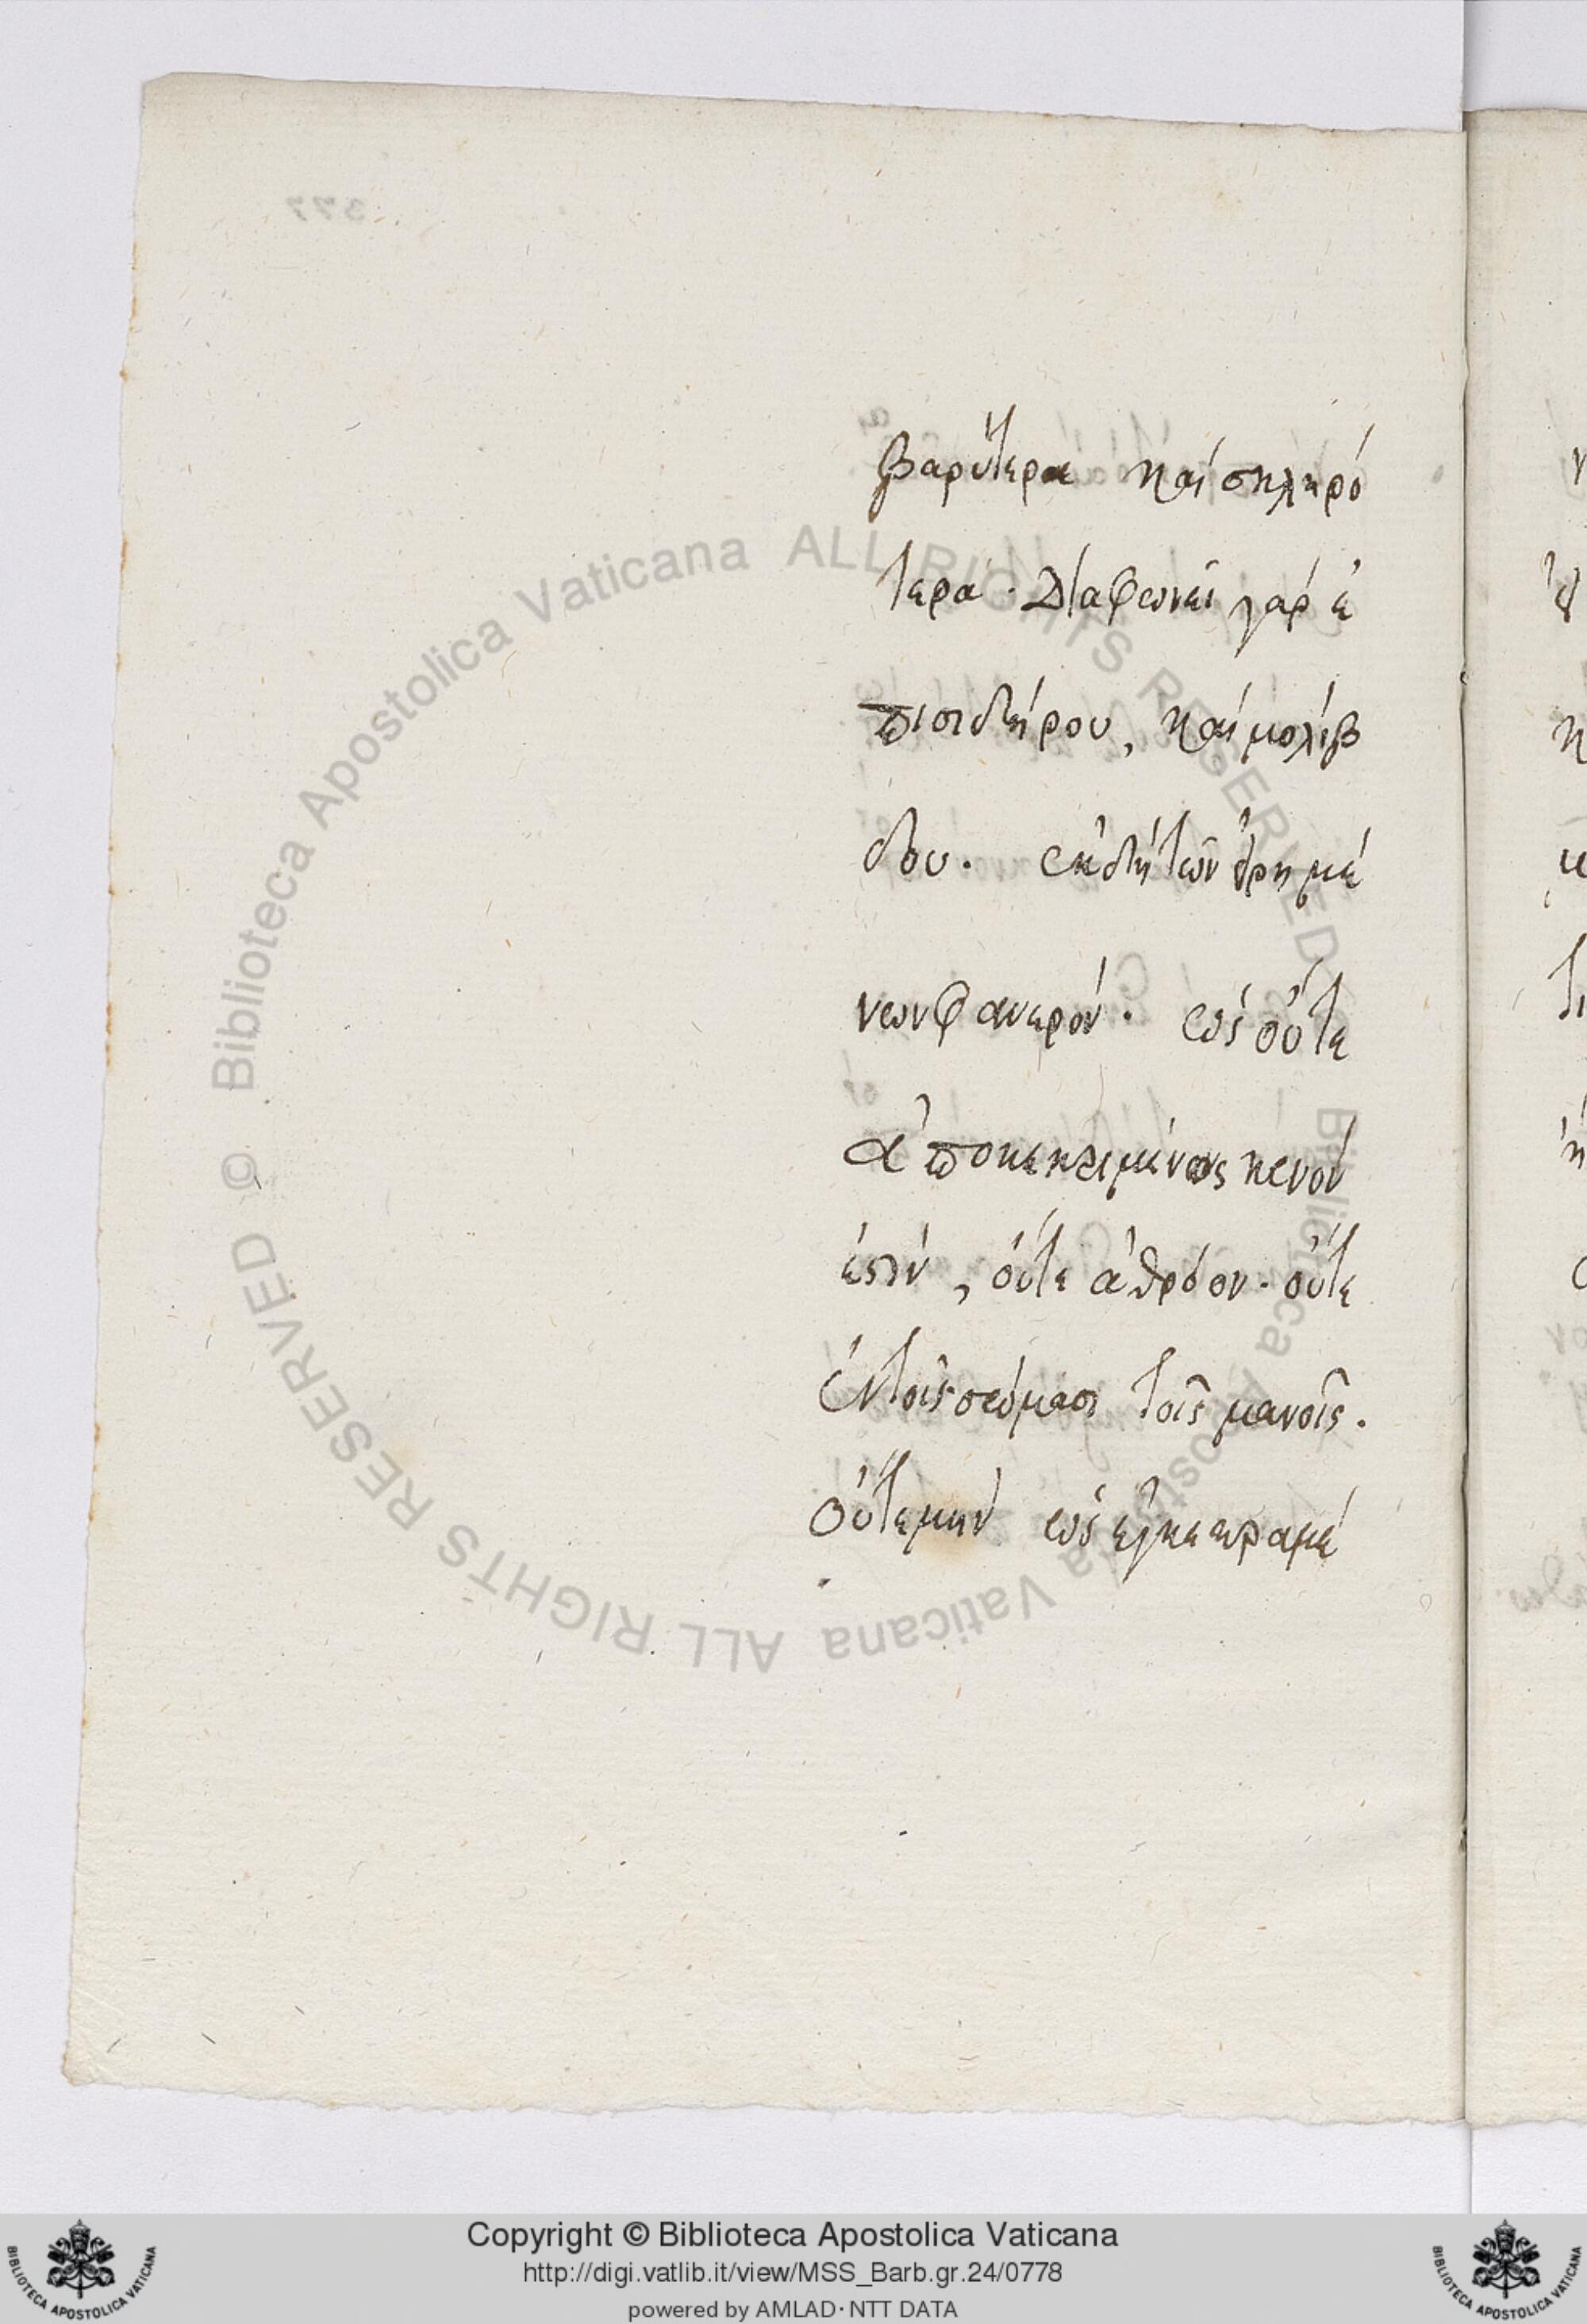 377
βαρύτερα καὶ σκληρό
τερα· διαφωνεῖ γὰρ ἐ
πὶ σιδήρου, καὶ μολίβ
δου. ἐκ δὴ τῶν εἰρημέ
νων φανερὸν· ὡς οὔτε
ἀποκεκριμένως κενὸν
ἐστὶν, οὔτε ἁθρόον· οὔτε
ἐν τοῖς σώμασι τοῖς μανοῖς.
οὔτε μὴν ὡς ἐγκεκραμέ
Biblioteca Apostolica Vaticana ALL RIGHTS RESERVED ©
Biblioteca Apostolica Vaticana ALL RIGHTS RESERVED ©
Copyright © Biblioteca Apostolica Vaticana
http://digi.vatlib.it/view/MSS_Barb.gr.24/0778
powered by AMLAD·NTT DATA
BIBLIOTECA APOSTOLICA VATICANA
BIBLIOTECA APOSTOLICA VATICANA